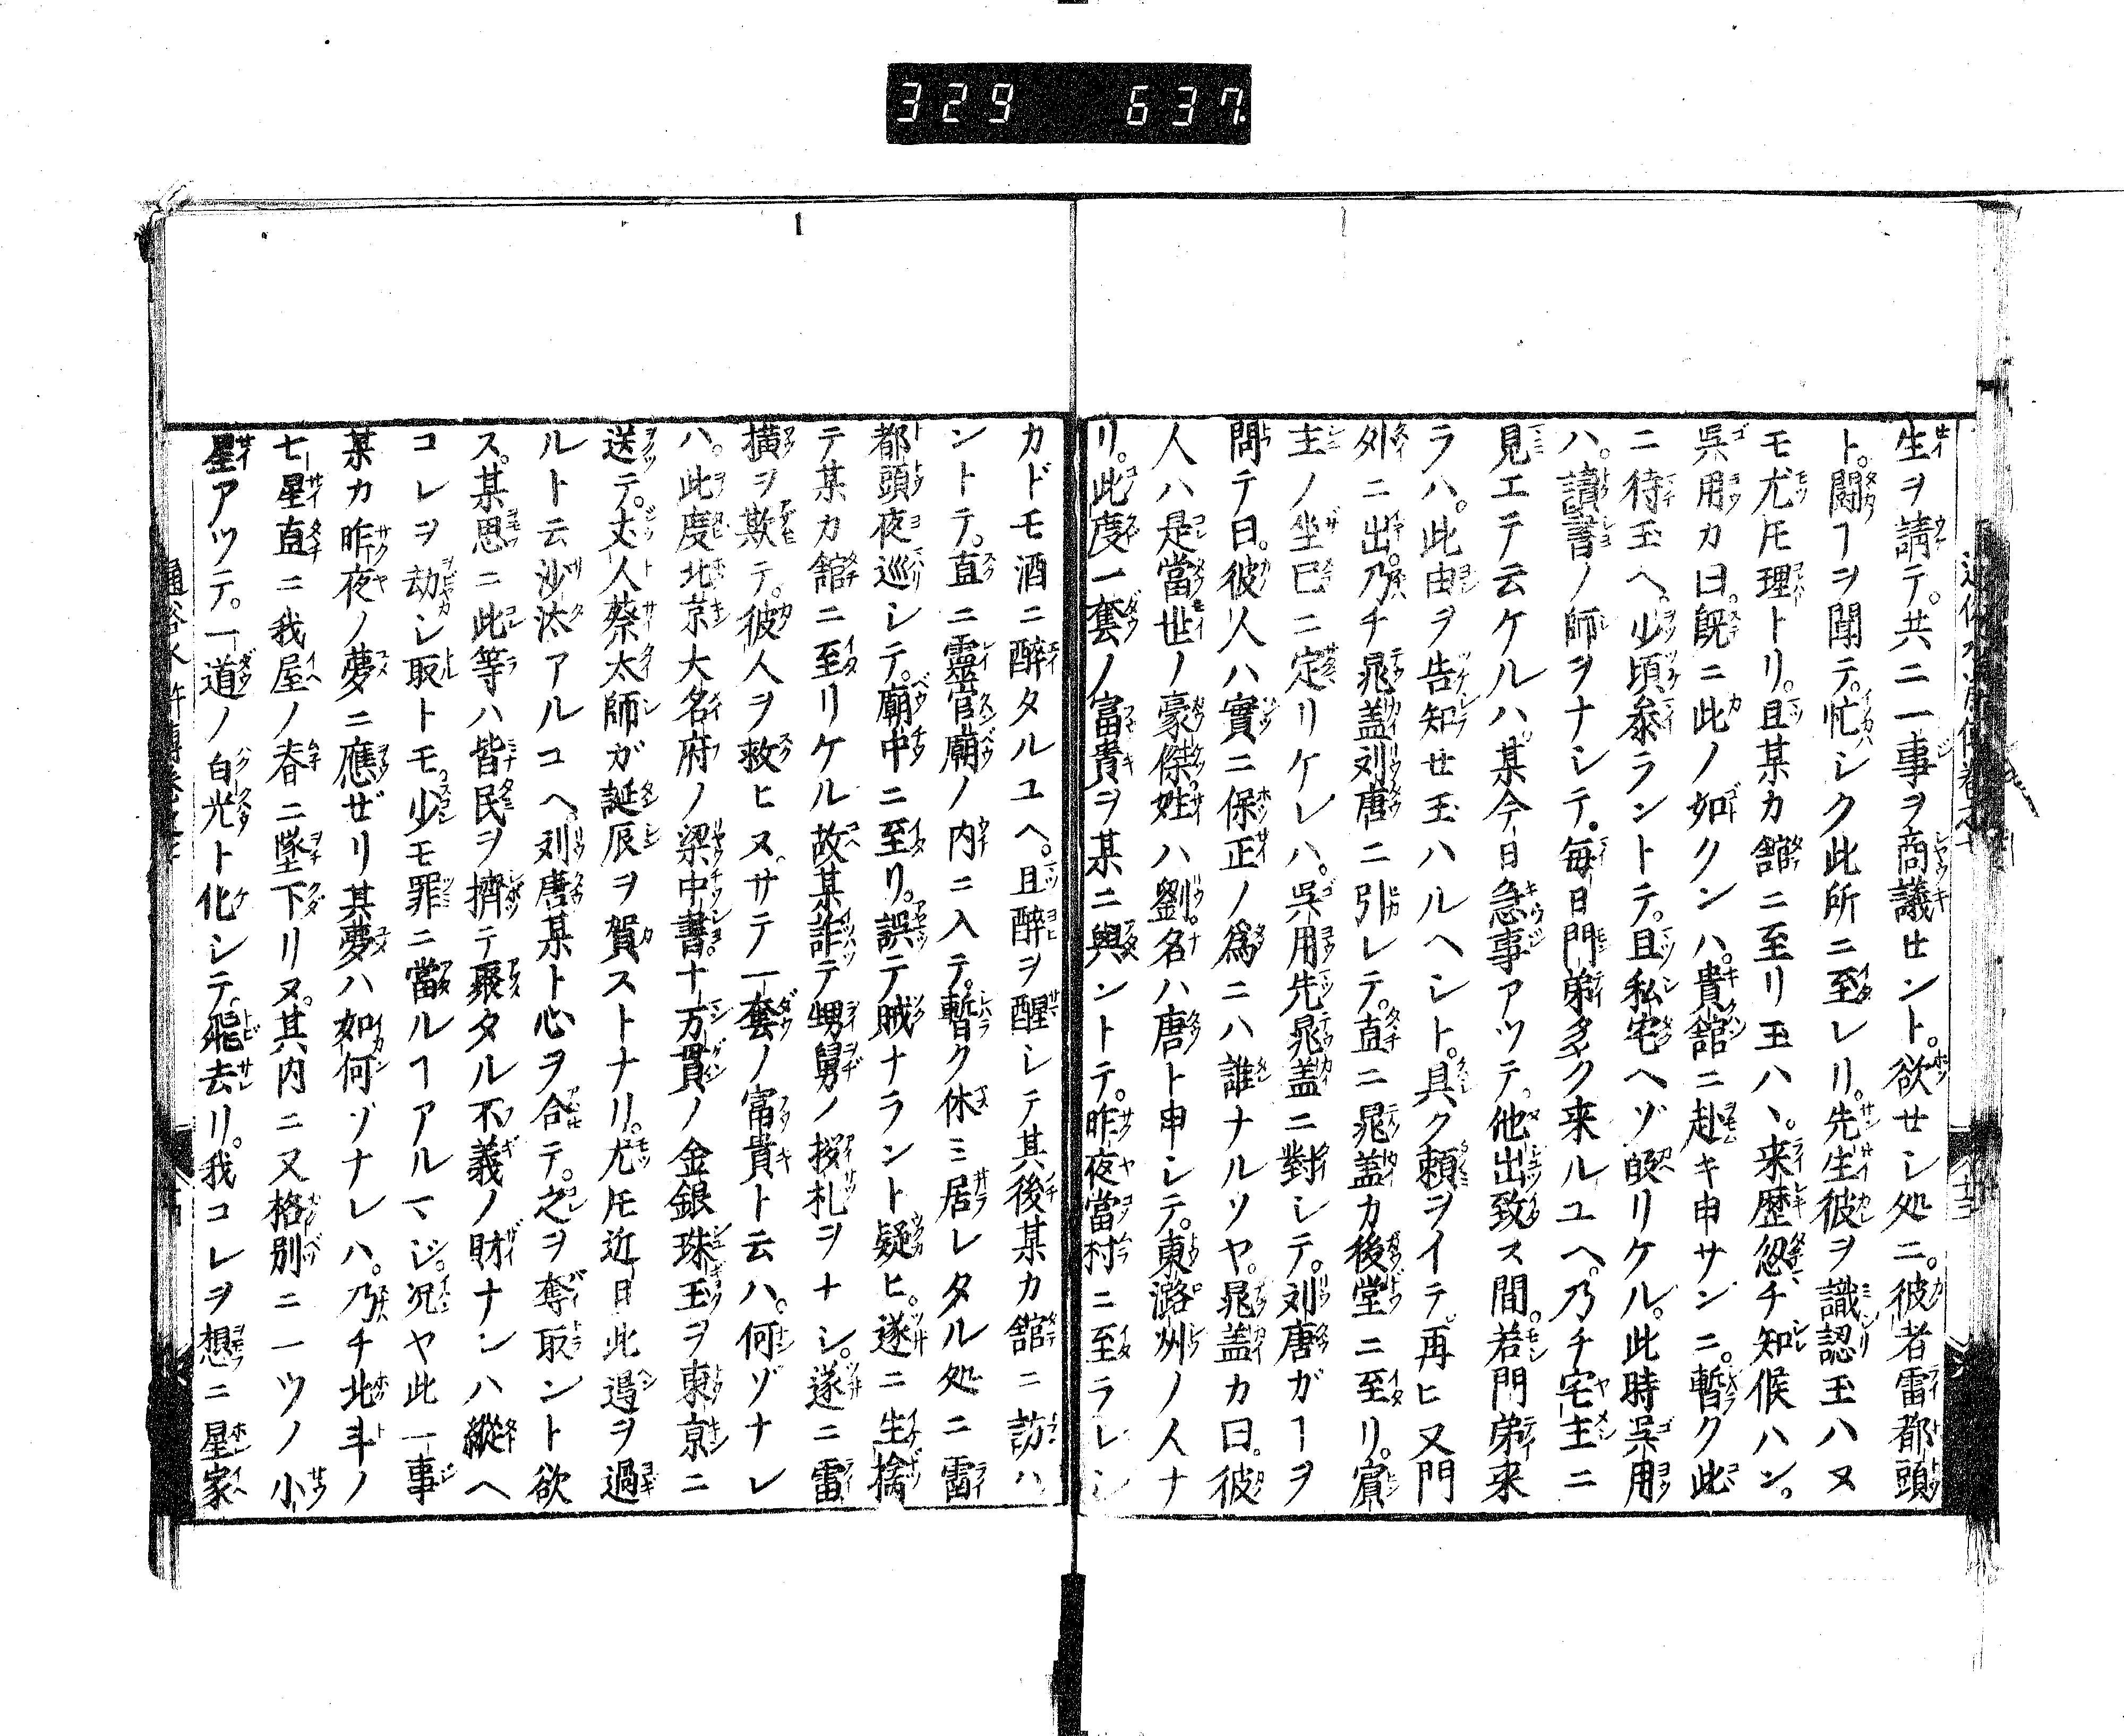 329 637.
生ヲ請テ。共ニ一事ヲ商議せント。欲せシ処ニ。彼者雷都頭
ト。闘ヿヲ聞テ。忙シク此所ニ至レリ。先生彼ヲ識認玉ハヌ
モ尤𪜈理トリ。且某カ舘ニ至リ玉ハヽ。来歴忽チ知候ハン。
呉用カ曰。既ニ此ノ如クンハ。貴舘ニ赴キ申サンニ。暫ク此
ニ待玉ヘ。少頃参ラントテ。且私宅ヘゾ皈リケル。此時呉用
ハ。讀書ノ師ヲナシテ。毎日門弟多ク来ルユヘ。乃チ宅主ニ
見エテ云ケルハ。某今日急事アツテ。他出致ス間。若門弟来
ラハ。此由ヲ告知せ玉ハルヘシト。具ク頼ヲイテ。再ヒ又門
外ニ出。乃チ晁盖刘唐ニ引レテ。直ニ晁盖カ後堂ニ至リ。賓
主ノ坐已ニ定リケレハ。呉用先晁盖ニ對シテ。刘唐ガヿヲ
問テ曰。彼人ハ實ニ保正ノ爲ニハ誰ナルソヤ。晁盖カ曰。彼
人ハ是當世ノ豪傑。姓ハ劉。名ハ唐ト申シテ。東潞州ノ人ナ
リ。此度一套ノ富貴ヲ某ニ與ントテ。昨夜當村ニ至ラレシ
カドモ酒ニ醉タルユヘ。且醉ヲ醒シテ其後某カ舘ニ訪ハ
ントテ。直ニ靈官廟ノ内ニ入テ。暫ク休ミ居レタル処ニ雷
都頭夜巡シテ。廟中ニ至リ。誤テ賊ナラント疑ヒ。遂ニ生擒
テ某カ舘ニ至リケル故。某詐テ甥舅ノ挨札ヲナシ。遂ニ雷
横ヲ欺テ。彼人ヲ救ヒヌ。サテ一套ノ富貴ト云ハ。何ゾナレ
ハ。此度北京大名府ノ梁中書。十万貫ノ金銀珠玉ヲ東京ニ
送テ。丈人蔡太師ガ誕辰ヲ賀ストナリ。尤𪜈近日此邉ヲ過
ルト云沙汰アルユヘ。刘唐某ト心ヲ合テ。之ヲ奪取ント欲
ス。某思ニ此等ハ皆民ヲ擠テ聚タル不義ノ財ナンハ縱ヘ
コレヲ劫シ取トモ。少モ罪ニ當ルヿアルマジ。况ヤ此一事
某カ昨夜ノ夢ニ應ぜリ其夢ハ如何ゾナレハ。乃チ北斗ノ
七星直ニ我屋ノ脊ニ墜下リヌ。其内ニ又格別ニ一ツノ小
星アツテ。一道ノ白光ト化シテ。飛去リ。我コレヲ想ニ星家